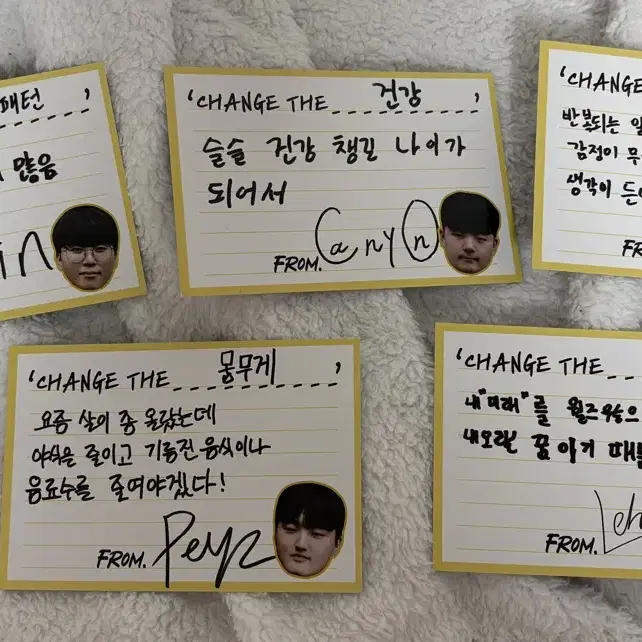 패턴 '
많음
in
'CHANGE THE 건강 '
슬슬 건강 챙길 나이가
되어서
FROM. Canyon
'CHANGE
반복되는
감정이 무
생각이
FR
'CHANGE THE 몸무게 '
요즘 살이 좀 올랐는데
야식을 줄이고 기름진 음식이나
음료수를 줄여야겠다!
FROM. Peyz
'CHANGE THE
내 "미래"를 월즈 우승으
내 오랜 꿈이기 때문
FROM. Leh